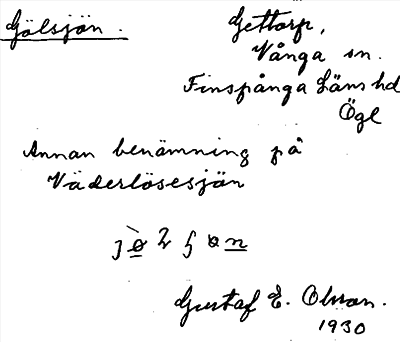 Gölsjön.
Gettorp,
Vånga sn.
Finspånga Läns hd
Ögl
Annan benämning på
Väderlösesjön
Gustaf E. Olsson.
1930